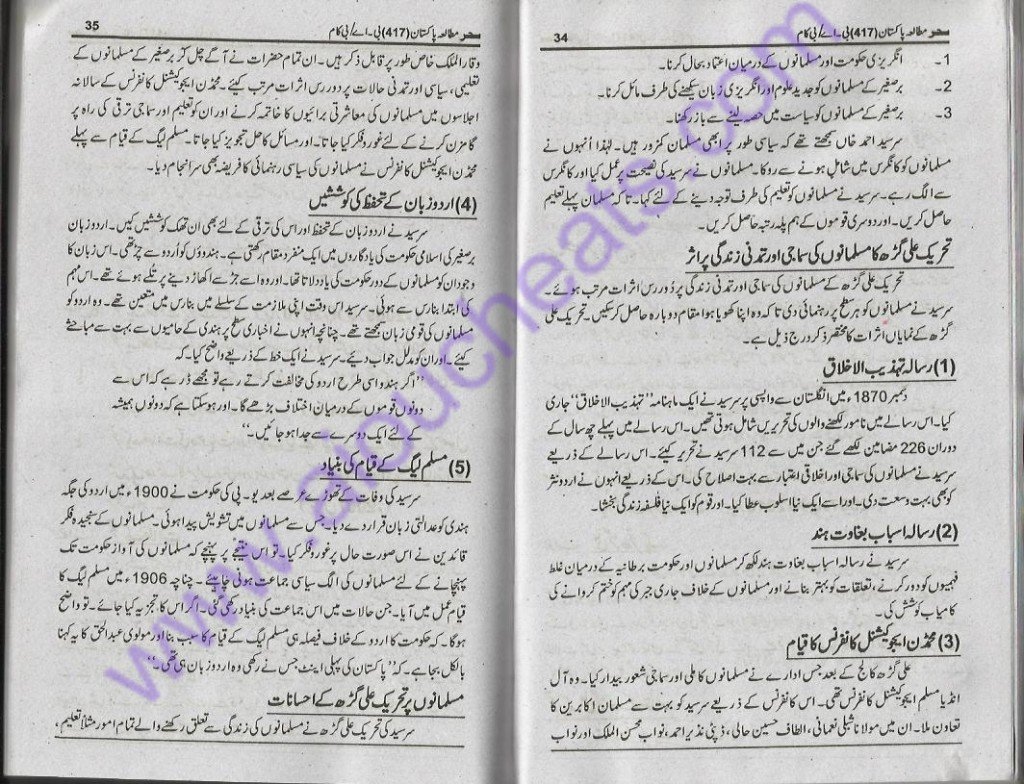 سحر مطالعہ پاکستان (417) بی۔اے/بی کام 34
1۔ انگریزی حکومت اور مسلمانوں کے درمیان اعتماد بحال کرنا۔
2۔ برصغیر کے مسلمانوں کو جدید علوم اور انگریزی زبان سیکھنے کی طرف مائل کرنا۔
3۔ برصغیر کے مسلمانوں کو سیاست میں حصہ لینے سے باز رکھنا۔
سرسید احمد خاں سمجھتے تھے کہ سیاسی طور پر ابھی مسلمان کمزور ہیں۔ لہٰذا اُنہوں نے
مسلمانوں کو کانگرس میں شامل ہونے سے روکا۔ مسلمانوں نے سرسید کی نصیحت پر عمل کیا اور کانگرس
سے الگ رہے۔ سرسید نے مسلمانوں کو تعلیم کی طرف توجہ دینے کے لئے کہا۔ تاکہ مسلمان پہلے تعلیم
حاصل کریں۔ اور دوسری قوموں کے ہم پلہ رتبہ حاصل کریں۔
تحریک علی گڑھ کا مسلمانوں کی سماجی اور تمدنی زندگی پر اثر
تحریک علی گڑھ کے مسلمانوں کی سماجی اور تمدنی زندگی پر دُور رس اثرات مرتب ہوئے۔
سرسید نے مسلمانوں کو ہر سطح پر رہنمائی دی تا کہ وہ اپنا کھویا ہوا مقام دوبارہ حاصل کر سکیں۔ تحریک علی
گڑھ کے نمایاں اثرات کا مختصر ذکر درج ذیل ہے۔
(1) رسالہ تہذیب الاخلاق
دسمبر 1870ء میں انگلستان سے واپسی پر سرسید نے ایک ماہنامہ ”تہذیب الاخلاق“ جاری
کیا۔ اس رسالے میں نامور لکھنے والوں کی تحریریں شامل ہوتی تھیں۔ اس رسالے میں پہلے چھ سال کے
دوران 226 مضامین لکھے گئے جن میں سے 112 سرسید نے تحریر کیئے۔ اس رسالہ کے ذریعے
سرسید نے مسلمانوں کی سماجی اور اخلاقی اعتبار سے بہت اصلاح کی۔ اس کے ذریعے انہوں نے اردو نثر
کو بھی بہت وسعت دی۔ اور اسے ایک نیا اسلوب عطا کیا۔ اور قوم کو ایک نیا فلسفہ زندگی بخشا۔
(2) رسالہ اسباب بغاوت ہند
سرسید نے رسالہ اسباب بغاوت ہند لکھ کر مسلمانوں اور حکومت برطانیہ کے درمیان غلط
فہمیوں کو دور کرنے، تعلقات کو بہتر بنانے اور مسلمانوں کے خلاف جاری جبر کی مہم کو ختم کروانے کی
کامیاب کوشش کی۔
(3) محمڈن ایجوکیشنل کانفرنس کا قیام
علی گڑھ کالج کے بعد جس ادارے نے مسلمانوں کا ملی اور سماجی شعور بیدار کیا۔ وہ آل
انڈیا مسلم ایجوکیشنل کانفرنس تھی۔ اس کانفرنس کے ذریعے سرسید کو بہت سے مسلمان اکابرین کا
تعاون ملا۔ ان میں مولانا شبلی نعمانی، الطاف حسین حالی، ڈپٹی نذیر احمد، نواب محسن الملک اور نواب
سحر مطالعہ پاکستان (417) بی۔اے/بی کام 35
وقار الملک خاص طور پر قابل ذکر ہیں۔ ان تمام حضرات نے آگے چل کر برصغیر کے مسلمانوں کے
تعلیمی، سیاسی اور تمدنی حالات پر دور رس اثرات مرتب کیئے۔ محمڈن ایجوکیشنل کانفرنس کے سالانہ
اجلاسوں میں مسلمانوں کی معاشرتی برائیوں کا خاتمہ کرنے اور ان کو تعلیم اور سماجی ترقی کی راہ پر
گامزن کرنے کے لئے غور و فکر کیا جاتا۔ اور مسائل کا حل تجویز کیا جاتا۔ مسلم لیگ کے قیام سے پہلے
محمڈن ایجوکیشنل کانفرنس نے مسلمانوں کی سیاسی رہنمائی کا فریضہ بھی سرانجام دیا۔
(4) اردو زبان کے تحفظ کی کوششیں
سرسید نے اردو زبان کے تحفظ اور اس کی ترقی کے لئے بھی ان تھک کوششیں کیں۔ اردو زبان
برصغیر کی اسلامی حکومت کی یادگاروں میں ایک منفرد مقام رکھتی ہے۔ ہندوؤں کو اُردو سے چڑ تھی۔ اس زبان کا
وجود ان کو مسلمانوں کے دور حکومت کی یاد دلاتا تھا۔ اور وہ اسے جڑ سے اکھاڑ دینے پر تلے ہوئے تھے۔ اس مہم
کی ابتدا بنارس سے ہوئی۔ سرسید اس وقت اپنی ملازمت کے سلسلے میں بنارس میں متعین تھے۔ وہ اردو کو
مسلمانوں کی قومی زبان سمجھتے تھے۔ چنانچہ انہوں نے اخباری سطح پر ہندی کے حامیوں سے بہت سے مباحثے
کیئے۔ اور ان کو مدلل جواب دیے۔ سرسید نے ایک خط کے ذریعے واضح کیا۔ کہ
”اگر ہندو اسی طرح اردو کی مخالفت کرتے رہے تو مجھے ڈر ہے کہ اس سے
دونوں قوموں کے درمیان اختلاف بڑھے گا۔ اور ہو سکتا ہے کہ دونوں ہمیشہ
کے لئے ایک دوسرے سے جدا ہو جائیں۔“
(5) مسلم لیگ کے قیام کی بنیاد
سرسید کی وفات کے تھوڑے عرصے بعد یو۔ پی کی حکومت نے 1900ء میں اردو کی جگہ
ہندی کو عدالتی زبان قرار دے دیا۔ جس سے مسلمانوں میں تشویش پیدا ہوئی۔ مسلمانوں کے سنجیدہ فکر
قائدین نے اس صورت حال پر غور و فکر کیا۔ تو اس نتیجے پر پہنچے کہ مسلمانوں کی آواز حکومت تک
پہنچانے کے لئے مسلمانوں کی الگ سیاسی جماعت ہونی چاہیئے۔ چناچہ 1906ء میں مسلم لیگ کا
قیام عمل میں آیا۔ جن حالات میں اس جماعت کی بنیاد رکھی گئی۔ اگر اس کا تجزیہ کیا جائے۔ تو واضح
ہوگا۔ کہ حکومت کا اردو کے خلاف فیصلہ ہی مسلم لیگ کے قیام کا سبب بنا اور مولوی عبدالحق کا یہ کہنا
بالکل بجا ہے۔ کہ ”پاکستان کی پہلی اینٹ جس نے رکھی وہ اردو زبان ہی تھی۔“
مسلمانوں پر تحریک علی گڑھ کے احسانات
سرسید کی تحریک علی گڑھ نے مسلمانوں کی زندگی سے تعلق رکھنے والے تمام امور مثلاً تعلیم،
www.aioucheats.com